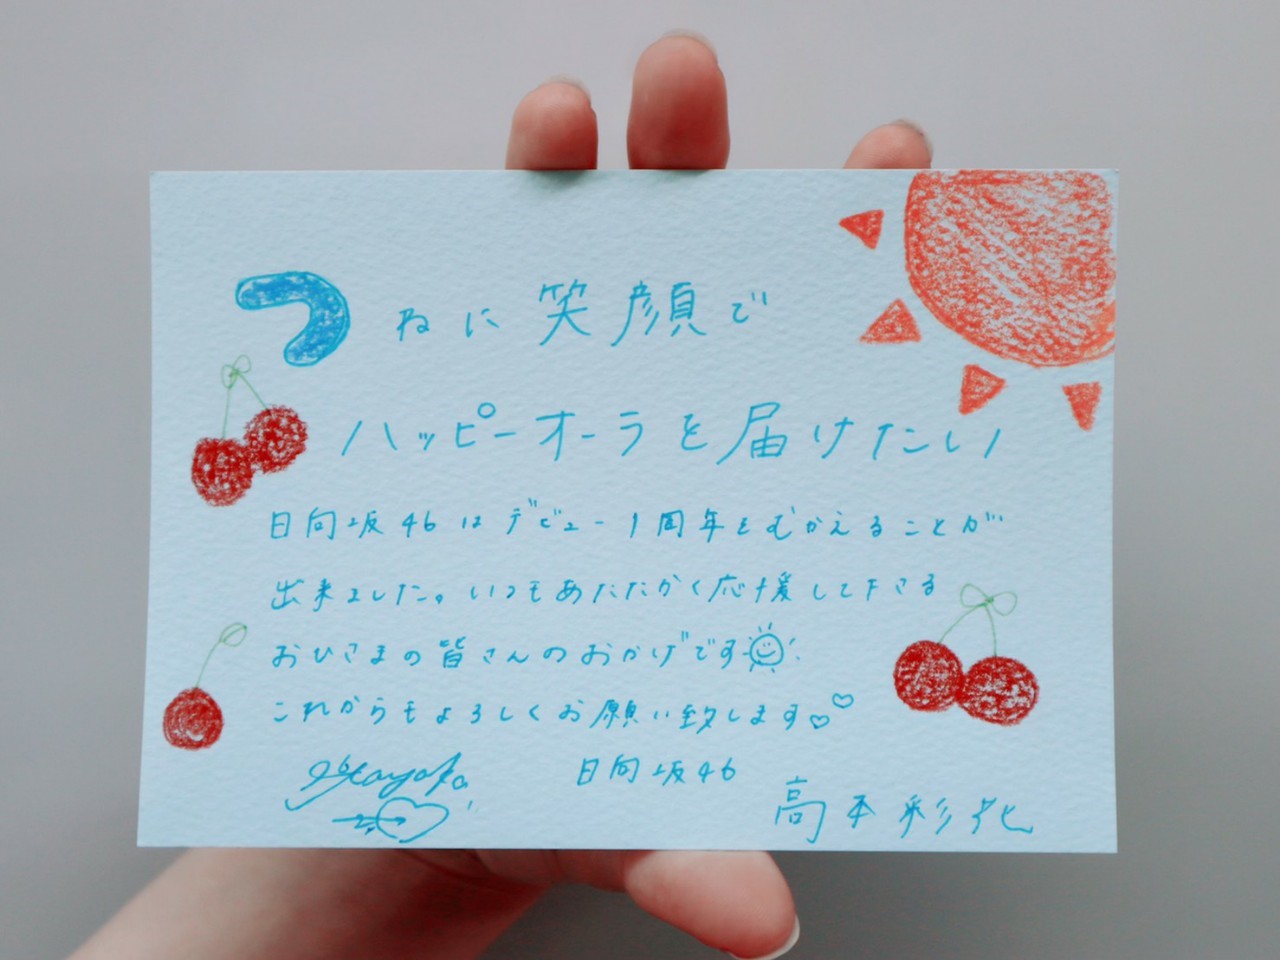 つねに笑顔で
ハッピーオーラを届けたい
日向坂46はデビュー1周年をむかえることが
出来ました。いつもあたたかく応援して下さる
おひさまの皆さんのおかげです
これからもよろしくお願い致します♡♡
日向坂46
高本彩花